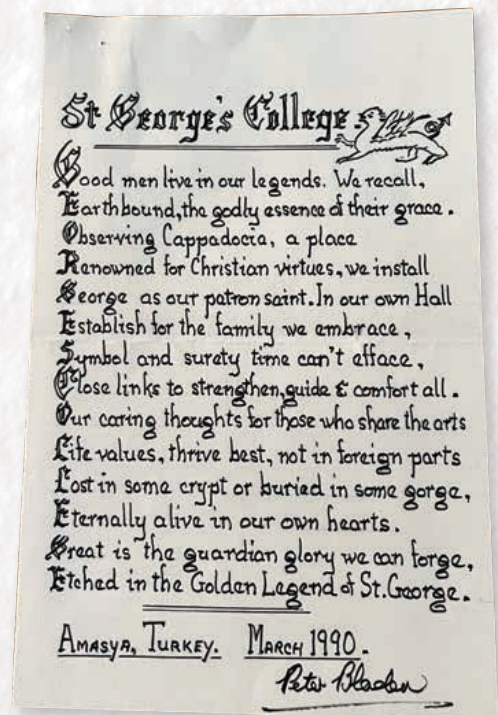 St George's College
Good men live in our legends. We recall,
Earthbound, the godly essence of their grace.
Observing Cappadocia, a place
Renowned for Christian virtues, we install
George as our patron saint. In our own Hall
Establish for the family we embrace,
Symbol and surety time can't efface,
Close links to strengthen, guide & comfort all.
Our caring thoughts for those who share the arts
Life values, thrive best, not in foreign parts
Lost in some crypt or buried in some gorge,
Eternally alive in our own hearts.
Great is the guardian glory we can forge,
Etched in the Golden Legend of St. George.
AMASYA, TURKEY. MARCH 1990.
Peter Bladen